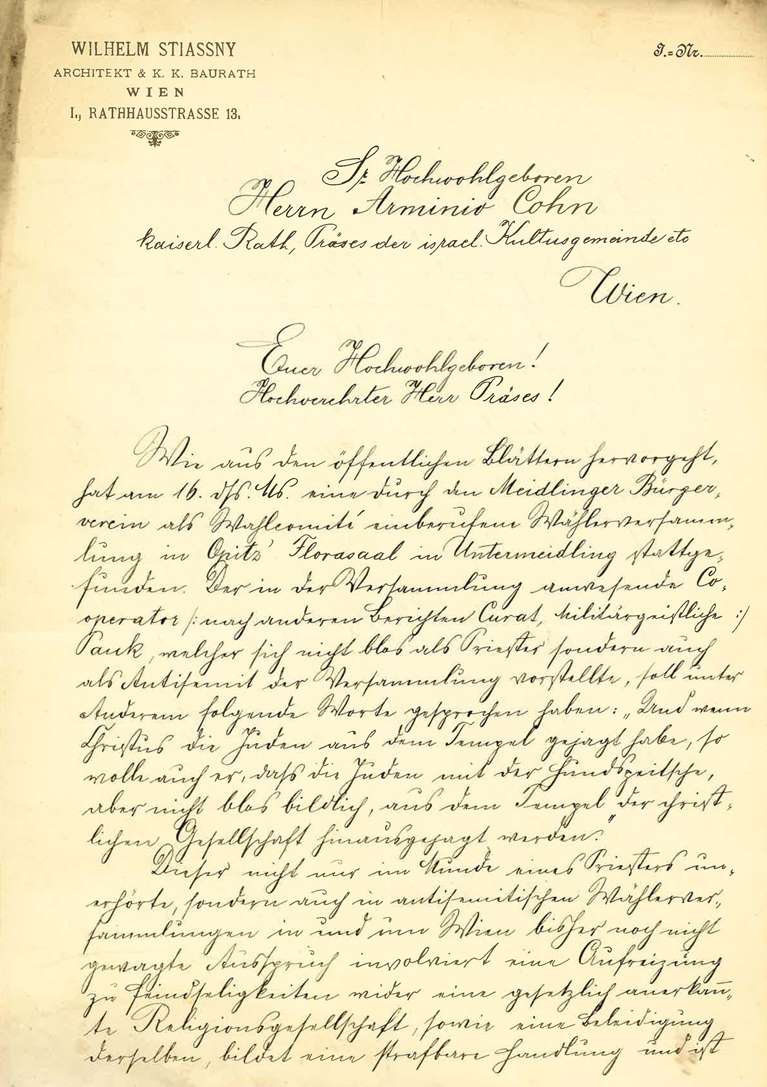 WILHELM STIASSNY
ARCHITEKT & K. K. BAURATH
WIEN
I., RATHHAUSSTRASSE 13.
J.=Nr.
Sr. Hochwohlgeboren
Herrn Arminio Cohn
kaiserl. Rath, Präses der israel. Kultusgemeinde etc
Wien.
Euer Hochwohlgeboren!
Hochverehrter Herr Präses!
Wie aus den öffentlichen Blättern hervorgeht,
hat am 16. ds. Ms. eine durch den Meidlinger Bürger-
verein als Wahlcomité einberufene Wählerversamm-
lung in Opitz' Florasaal in Untermeidling stattge-
funden. Der in der Versammlung anwesende Co-
operator /: nach anderen Berichten Curat, Militärgeistliche :/
Pauk, welcher sich nicht blos als Priester sondern auch
als Antisemit der Versammlung vorstellte, soll unter
Anderem folgende Worte gesprochen haben: „Und wenn
Christus die Juden aus dem Tempel gejagt habe, so
wolle auch er, daß die Juden mit der Hundspeitsche,
aber nicht blos bildlich, aus dem Tempel der christ-
lichen Gesellschaft hinausgejagt werden."
Dieser nicht nur im Munde eines Priesters un-
erhörte, sondern auch in antisemitischen Wählerver-
sammlungen in und um Wien bisher noch nicht
gewagte Ausspruch involviert eine Aufreizung
zu Feindseligkeiten wider eine gesetzlich anerkann-
te Religionsgesellschaft, sowie eine Beleidigung
derselben, bildet eine strafbare Handlung und ist